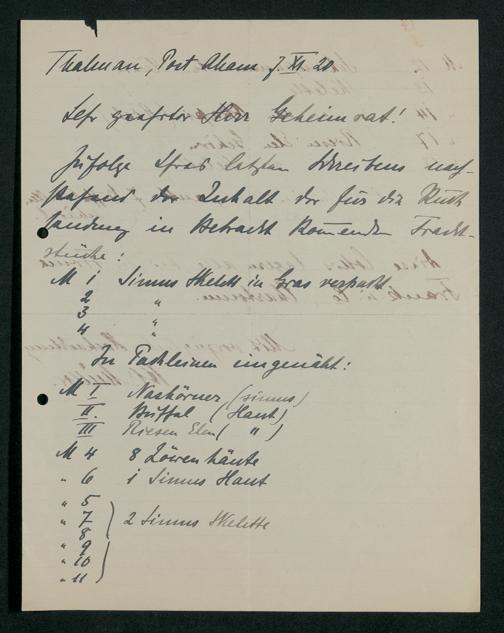 Thalmann, Post Aham 7. XI. 20
Sehr geehrter Herr Geheimrat!
Zufolge Ihres letzten Schreibens nach-
stehend der Inhalt der für die Rück
sendung in Betracht kommenden Fracht-
stücke:
M 1 Simus Skelett in Gras verpackt
2 "
3 "
4 "
In Packleinen eingenäht:
M I Nashörner (simus)
II. Büffel (Haut)
III Riesen Elen ( " )
M 4 8 Löwenhäute
" 6 1 Simus Haut
" 5
" 7 } 2 Simus Skelette
" 8
" 9
" 10
" 11